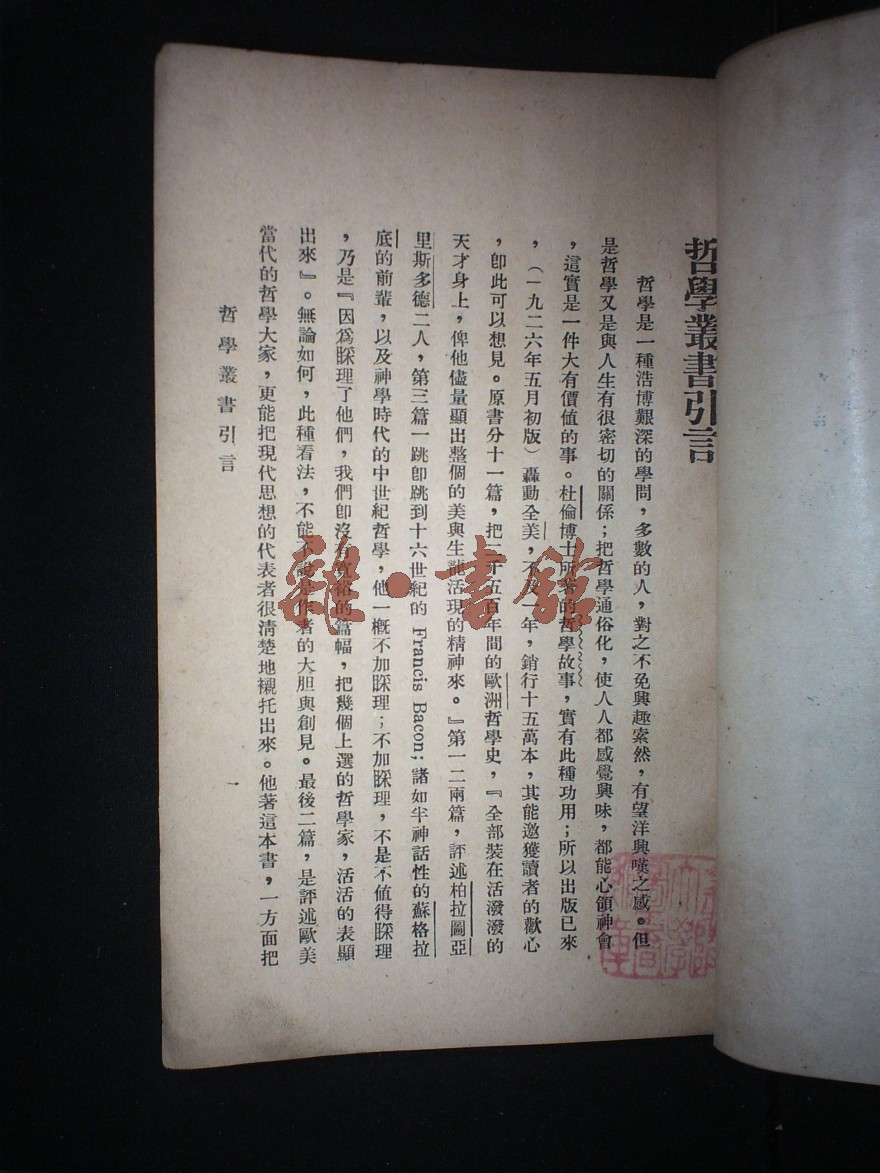 哲學叢書引言
哲學是一種浩博艱深的學問，多數的人，對之不免興趣索然，有望洋興嘆之感。但
是哲學又是與人生有很密切的關係；把哲學通俗化，使人人都感覺興味，都能心領神會
，這實是一件大有價值的事。杜倫博士所著的哲學故事，實有此種功用；所以出版已來
，（一九二六年五月初版）轟動全美，不及一年，銷行十五萬本，其能邀獲讀者的歡心
，卽此可以想見。原書分十一篇，把二千五百年間的歐洲哲學史，『全部裝在活潑潑的
天才身上，俾他儘量顯出整個的美與生龍活現的精神來。』第一二兩篇，評述柏拉圖亞
里斯多德二人，第三篇一跳卽跳到十六世紀的 Francis Bacon；諸如半神話性的蘇格拉
底的前輩，以及神學時代的中世紀哲學，他一概不加睬理；不加睬理，不是不值得睬理
，乃是『因爲睬理了他們，我們卽沒有寬裕的篇幅，把幾個上選的哲學家，活活的表顯
出來』。無論如何，此種看法，不能不說是作者的大胆與創見。最後二篇，是評述歐美
當代的哲學大家，更能把現代思想的代表者很清楚地襯托出來。他著這本書，一方面把
哲學叢書引言
一
雜·書館